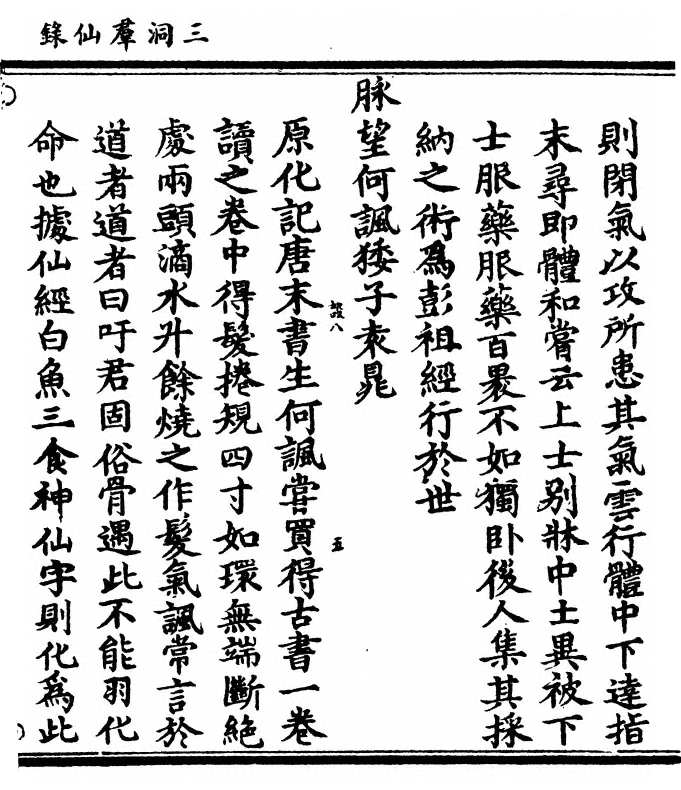 三洞羣仙錄
則閉氣以攻所患其氣雲行體中下達指
末尋即體和嘗云上士別牀中士異被下
士服藥服藥百裹不如獨卧後人集其採
納之術爲彭祖經行於世
脉望何諷矮子袁晁
原化記唐末書生何諷嘗買得古書一巻
讀之巻中得髮捲規四寸如環無端斷絶
處兩頭滴水升餘燒之作髮氣諷常言於
道者道者曰吁君固俗骨遇此不能羽化
命也據仙經白魚三食神仙字則化爲此
八
五